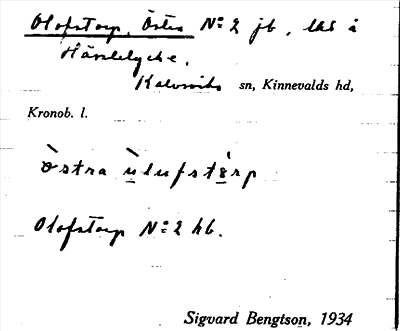 Olofstorp, Östra No 2 jb, lhs å
Härdelycke,
Kalvsviks sn, Kinnevalds hd,
Kronob. l.
Östra ulufstårp
Olofstorp No 2 hb.
Sigvard Bengtson, 1934